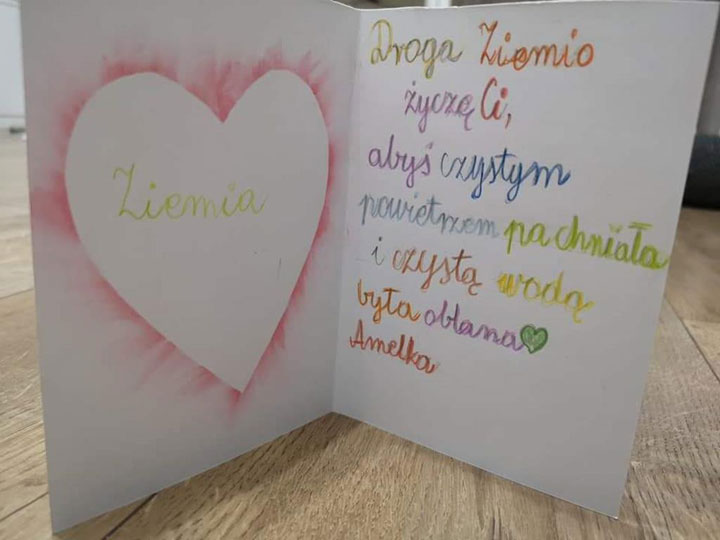 Ziemia
Droga Ziemio
życzę Ci,
abyś czystym
powietrzem pachniała
i czystą wodą
była oblana
Amelka